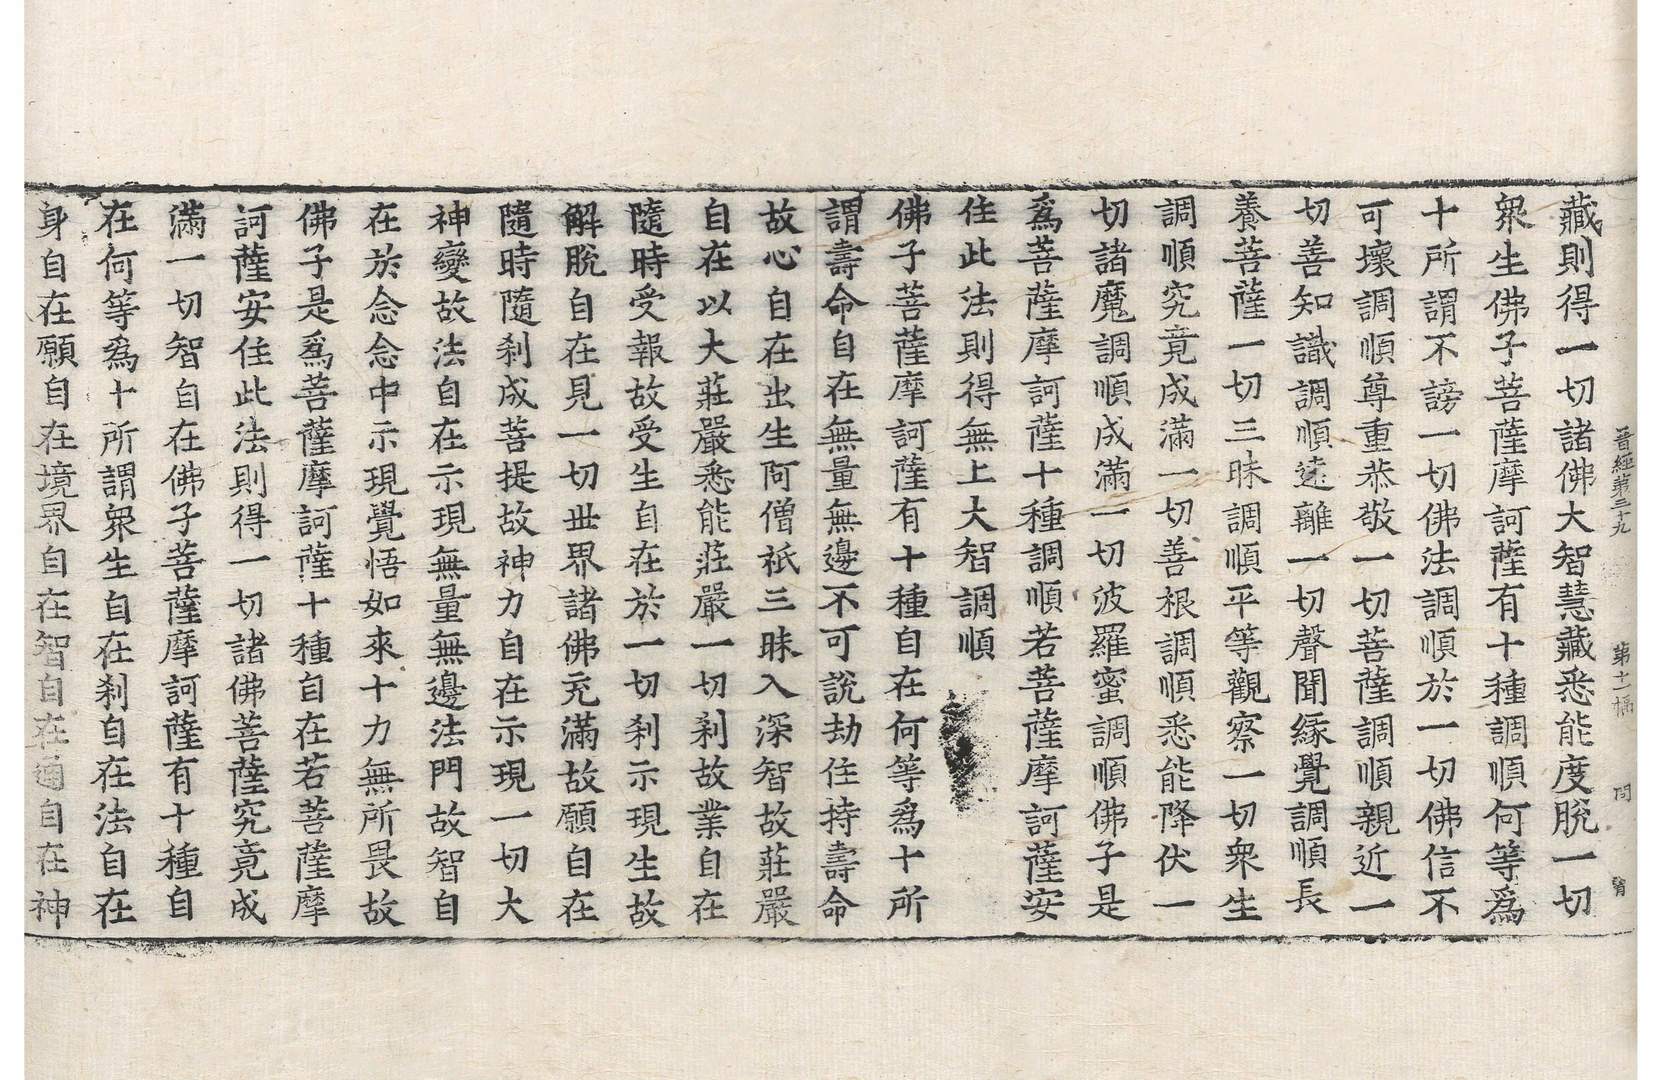 晉經第三十九 第十一幅 同 省
藏則得一切諸佛大智慧藏悉能度脫一切
衆生佛子菩薩摩訶薩有十種調順何等爲
十所謂不謗一切佛法調順於一切佛信不
可壞調順尊重恭敬一切菩薩調順親近一
切善知識調順遠離一切聲聞緣覺調順長
養菩薩一切三昧調順平等觀察一切衆生
調順究竟成滿一切善根調順悉能降伏一
切諸魔調順成滿一切波羅蜜調順佛子是
爲菩薩摩訶薩十種調順若菩薩摩訶薩安
住此法則得無上大智調順
佛子菩薩摩訶薩有十種自在何等爲十所
謂壽命自在無量無邊不可說劫住持壽命
故心自在出生阿僧祇三昧入深智故莊嚴
自在以大莊嚴悉能莊嚴一切刹故業自在
隨時受報故受生自在於一切刹示現生故
解脫自在見一切世界諸佛充滿故願自在
隨時隨刹成菩提故神力自在示現一切大
神變故法自在示現無量無邊法門故智自
在於念念中示現覺悟如來十力無所畏故
佛子是爲菩薩摩訶薩十種自在若菩薩摩
訶薩安住此法則得一切諸佛菩薩究竟成
滿一切智自在佛子菩薩摩訶薩有十種自
在何等爲十所謂衆生自在刹自在法自在
身自在願自在境界自在智自在通自在神